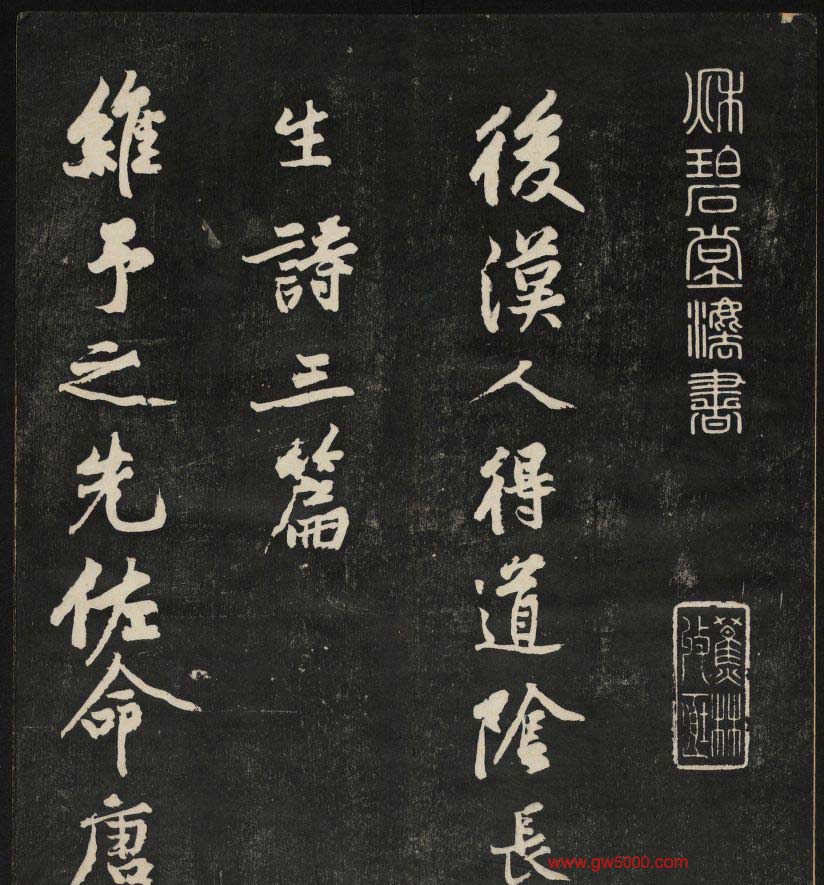 秋碧堂法書
後漢人得道陰長
生詩三篇
維予之先佐命唐
www.gw5000.com